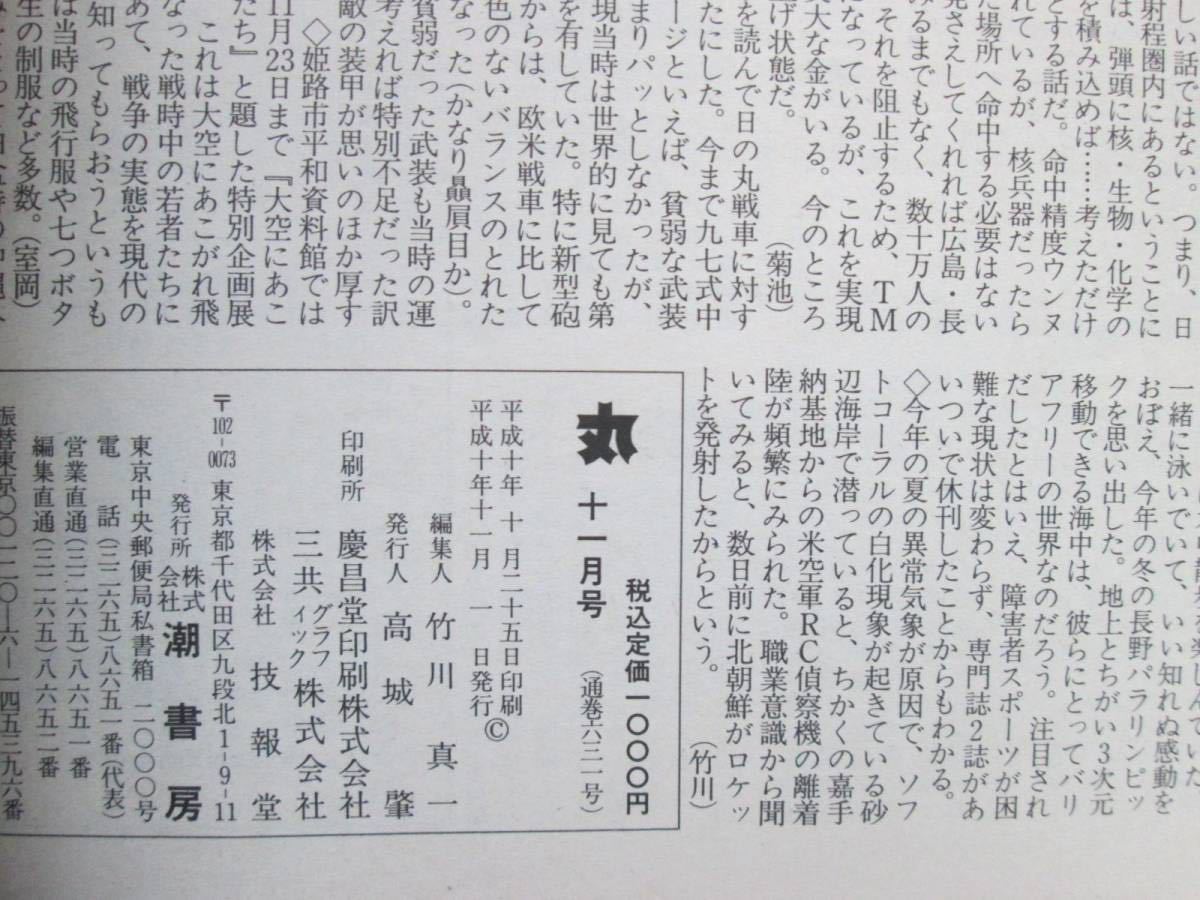 しい話ではない。つまり、日
射程圏内にあるということに
は、弾頭に核・生物・化学の
を積み込めば……考えただけ
とする話だ。命中精度ウンヌ
れているが、核兵器だったら
た場所へ命中する必要はない
発さえしてくれれば広島・長
みるまでもなく、数十万人の
それを阻止するため、TM
になっているが、これを実現
莫大な金がいる。今のところ
上げ状態だ。（菊池）
を読んで日の丸戦車に対す
ージといえば、貧弱な武装
たにした。今まで九七式中
まりパッとしなかったが、
現当時は世界的に見ても第
を有していた。特に新型砲
からは、欧米戦車に比して
色のないバランスのとれた
なった（かなり贔屓目か）。
貧弱だった武装も当時の運
考えれば特別不足だった訳
敵の装甲が思いのほか厚す
◇姫路市平和資料館では
11月23日まで『大空にあこ
たち』と題した特別企画展
これは大空にあこがれ飛
なった戦時中の若者たちに
あて、戦争の実態を現代の
知ってもらおうというも
は当時の飛行服や七つボタ
生の制服など多数。（室岡）
一緒に泳いでいて、いい知れぬ感動を
おぼえ、今年の冬の長野パラリンピッ
クを思い出した。地上とちがい3次元
移動できる海中は、彼らにとってバリ
アフリーの世界なのだろう。注目され
だしたとはいえ、障害者スポーツが困
難な現状は変わらず、専門誌2誌があ
いついで休刊したことからもわかる。
◇今年の夏の異常気象が原因で、ソフ
トコーラルの白化現象が起きている砂
辺海岸で潜っていると、ちかくの嘉手
納基地からの米空軍RC偵察機の離着
陸が頻繁にみられた。職業意識から聞
いてみると、数日前に北朝鮮がロケッ
トを発射したからという。（竹川）
税込定価一〇〇〇円
丸 十一月号（通巻六三一号）
平成十年十月二十五日印刷
平成十年十一月一日発行©
編集人 竹川真一
発行人 高城肇
印刷所 慶昌堂印刷株式会社
三共グラフィック株式会社
株式会社 技報堂
〒102-0073 東京都千代田区九段北1-9-11
発行所 株式会社 潮書房
東京中央郵便局私書箱 二〇〇〇号
電話（三二六五）八六五一番（代表）
営業直通（三二六五）八六五一番
編集直通（三二六五）八六五二番
振替東京〇〇一二〇―六―一四五三九六番